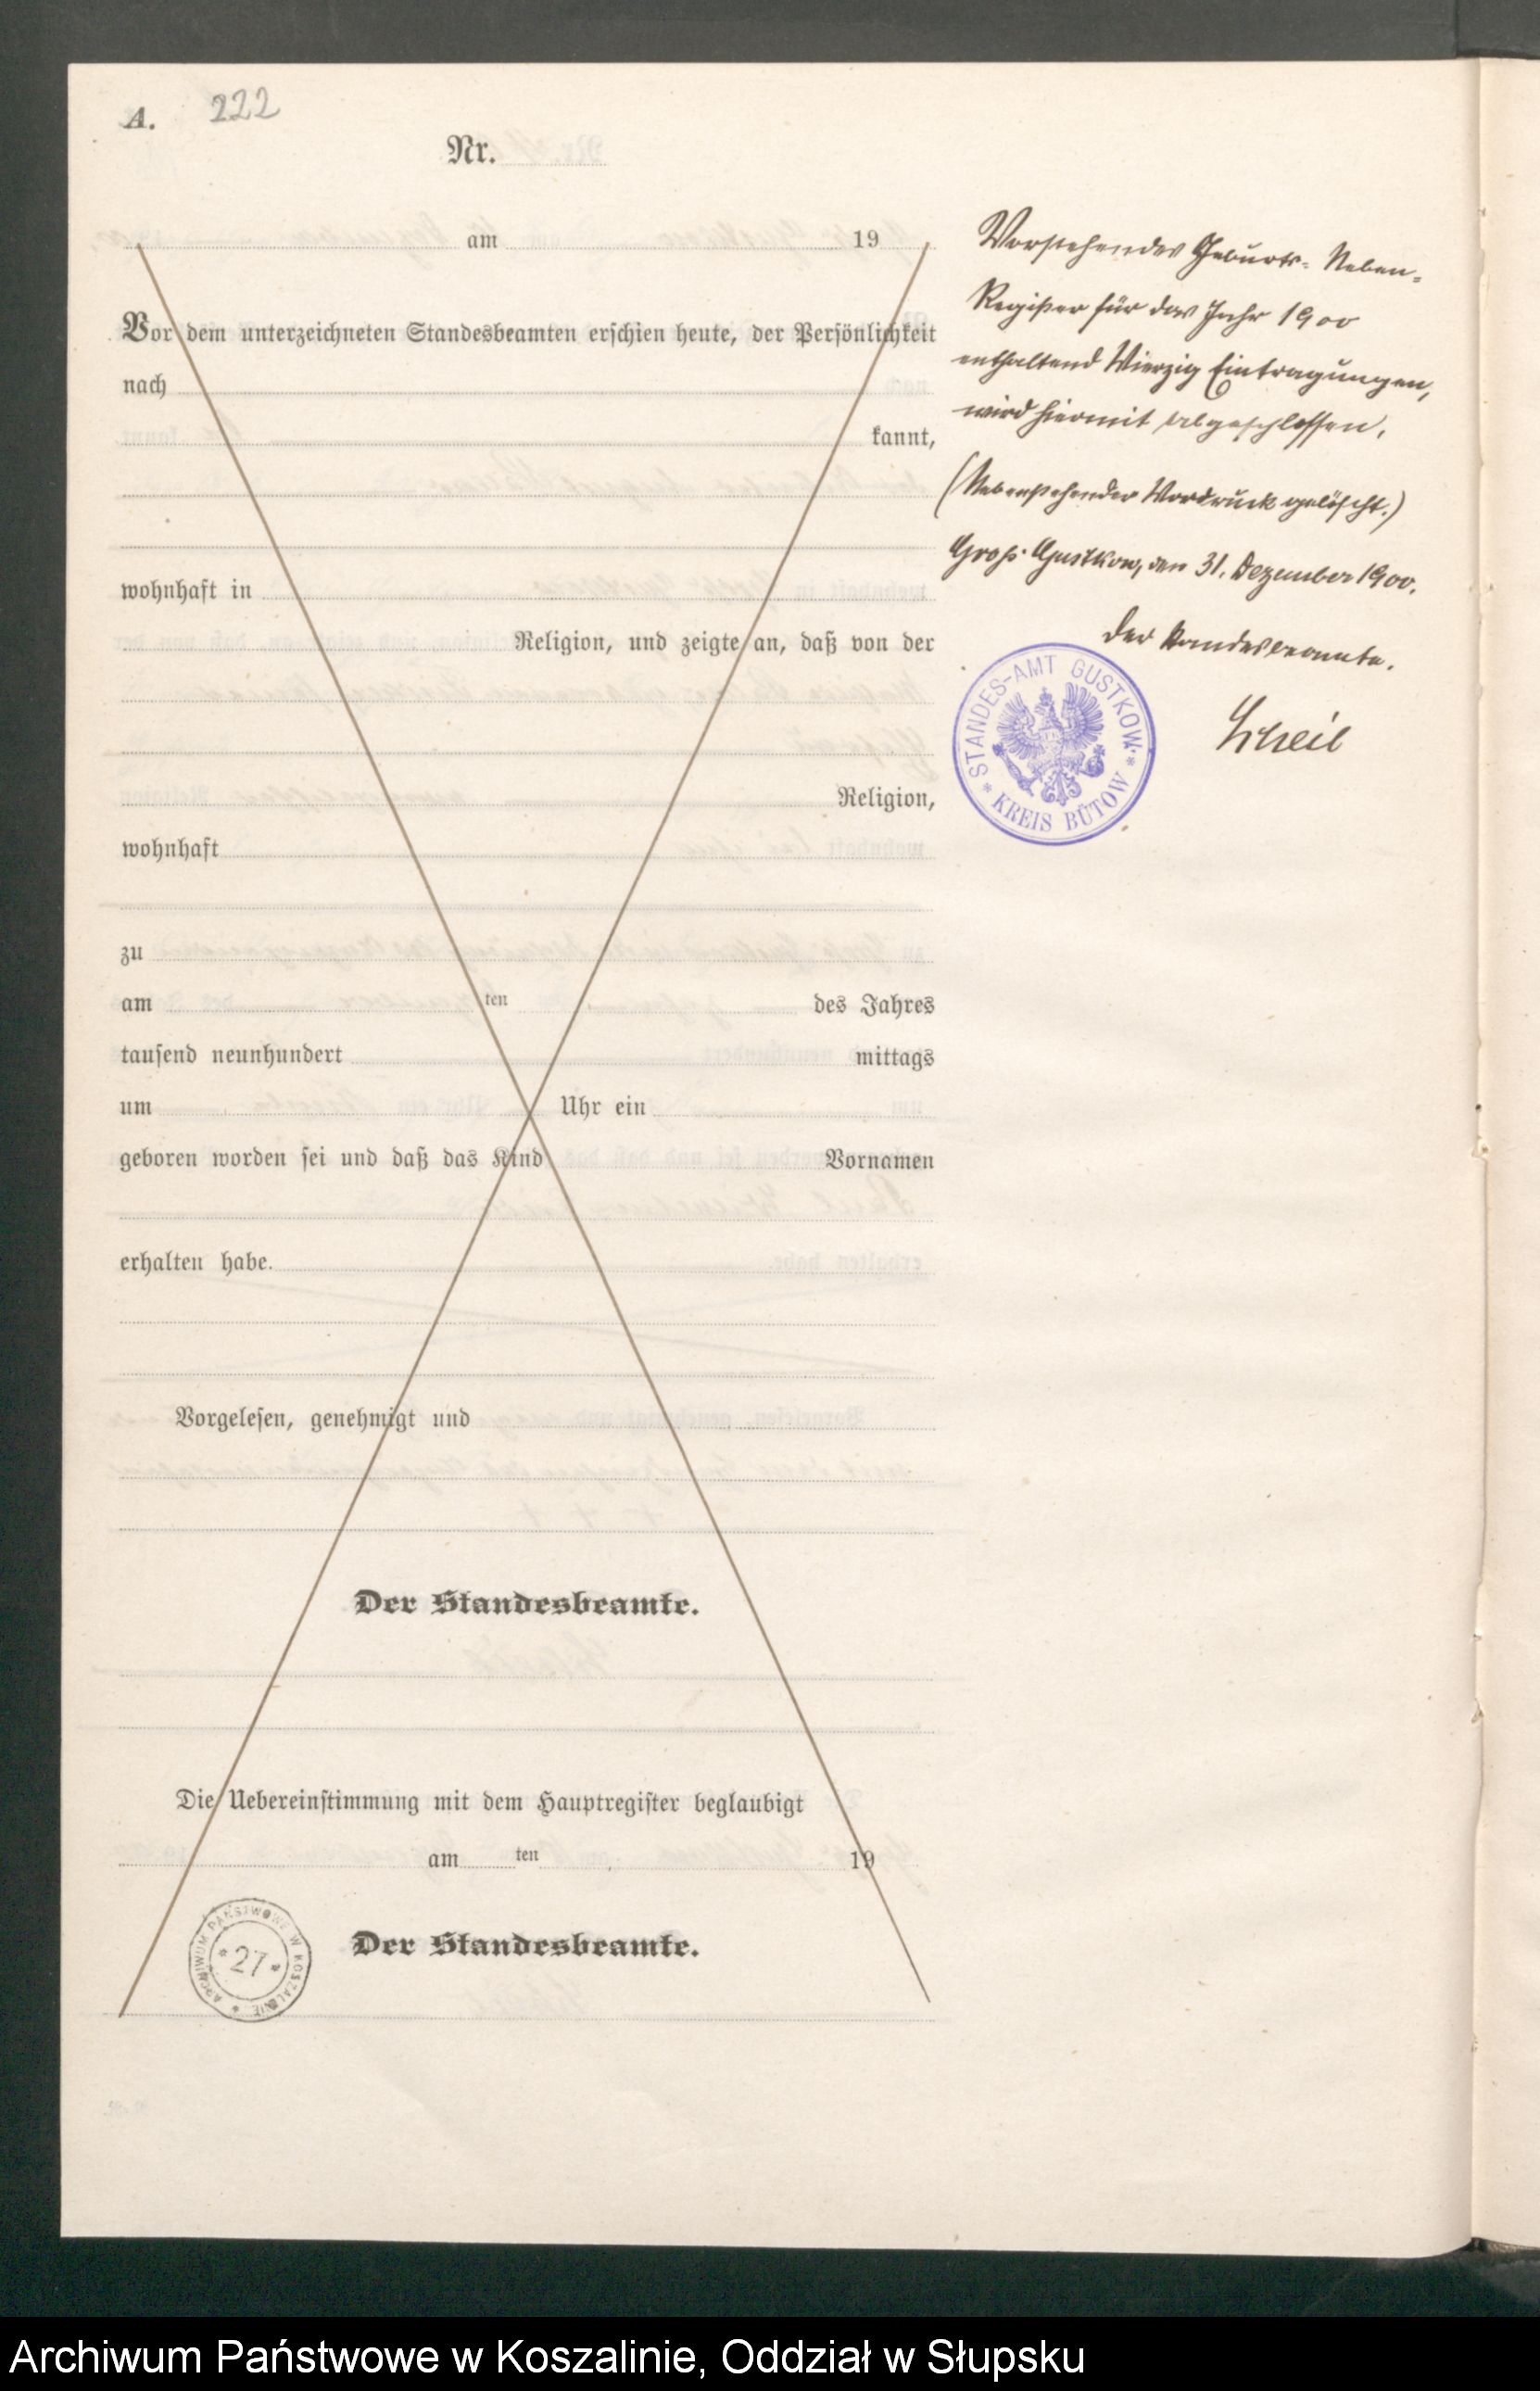 A. 222
Nr.
am 19
Vor dem unterzeichneten Standesbeamten erschien heute, der Persönlichkeit
nach
kannt,
wohnhaft in
Religion, und zeigte an, daß von der
Religion,
wohnhaft
zu
am ten des Jahres
tausend neunhundert mittags
um Uhr ein
geboren worden sei und daß das Kind Vornamen
erhalten habe.
Vorgelesen, genehmigt und
Der Standesbeamte.
Die Uebereinstimmung mit dem Hauptregister beglaubigt
am ten 19
Der Standesbeamte.
ARCHIWUM PAŃSTWOWE W KOSZALINIE
* 27 *
Vorstehendes Geburts-Neben-
Register für das Jahr 1900
enthaltend Vierzig Eintragungen,
wird hiermit abgeschlossen.
(Nebenstehender Vordruck gelöscht.)
Groß Gustkow, den 31. Dezember 1900.
Der Standesbeamte.
Scheil
* STANDES-AMT GUSTKOW *
KREIS BÜTOW
Archiwum Państwowe w Koszalinie, Oddział w Słupsku